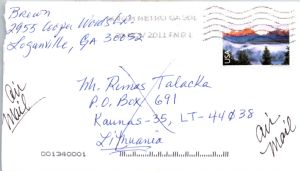 Brown
2955 Cooper Woods Dr
Loganville, GA 30052
METRO GA 301
2011 PM 1
USA
Air
Mail
Mr. Rimas Talacka
P.O. Box 691
Kaunas-35, LT-44038
Lithuania
Air
Mail
001340001